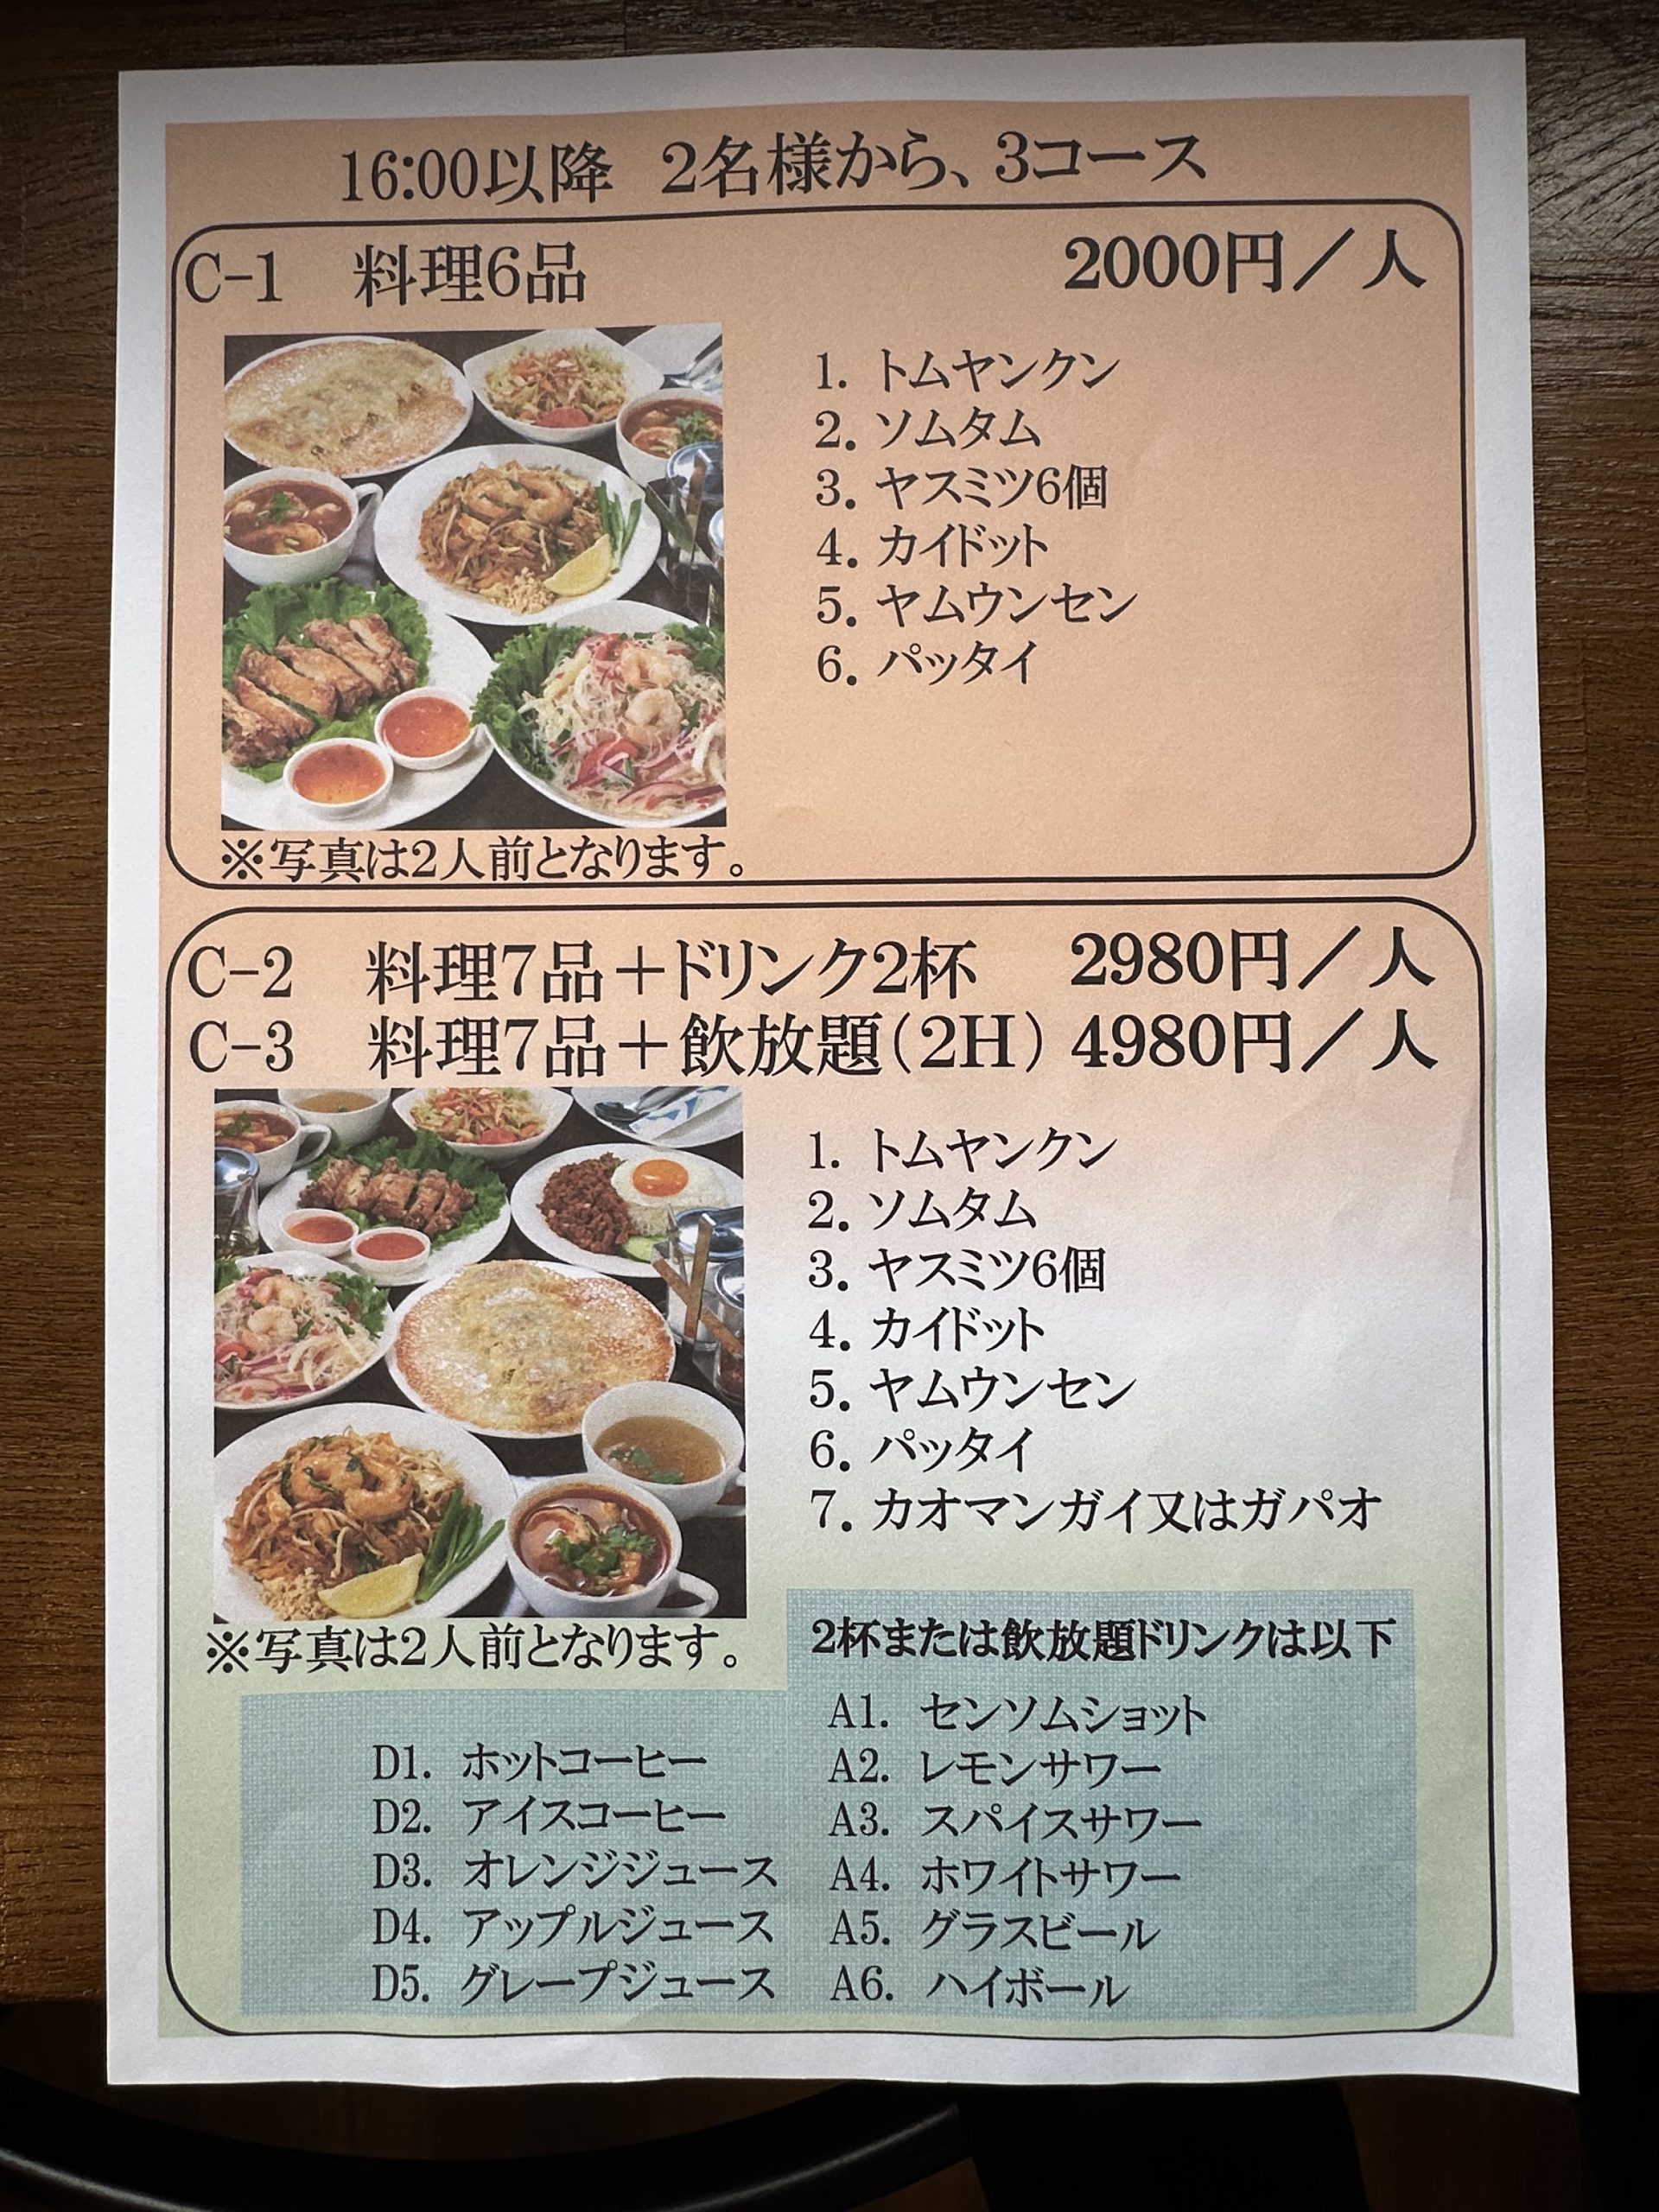 16:00以降 2名様から、3コース
C-1 料理6品 2000円／人
1. トムヤンクン
2. ソムタム
3. ヤスミツ6個
4. カイドット
5. ヤムウンセン
6. パッタイ
※写真は2人前となります。
C-2 料理7品＋ドリンク2杯 2980円／人
C-3 料理7品＋飲放題（2H） 4980円／人
1. トムヤンクン
2. ソムタム
3. ヤスミツ6個
4. カイドット
5. ヤムウンセン
6. パッタイ
7. カオマンガイ又はガパオ
※写真は2人前となります。
2杯または飲放題ドリンクは以下
D1. ホットコーヒー
D2. アイスコーヒー
D3. オレンジジュース
D4. アップルジュース
D5. グレープジュース
A1. センソムショット
A2. レモンサワー
A3. スパイスサワー
A4. ホワイトサワー
A5. グラスビール
A6. ハイボール